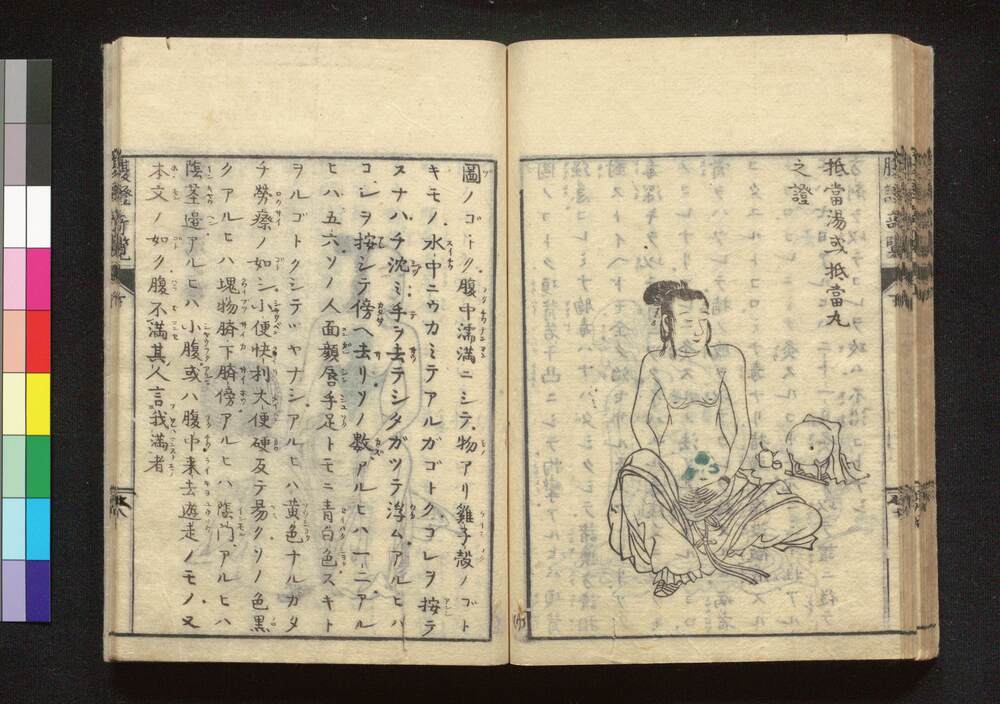 抵當湯或抵當丸
之證
圖ノゴトク腹中濡満ニシテ物アリ雞子殻ノゴト
キモノ水中ニウカミテアルガゴトクコレヲ按テ
スナハチ沈ミ手ヲ去テシタガツテ浮ムアルヒハ
コレヲ按シテ傍ヘ去リソノ數アルヒハ一二アル
ヒハ五六ソノ人面顔唇手足トモニ青白色スキト
ヲルゴトクシテツヤナシアルヒハ黄色ナルガタ
チ勞療ノ如シ小便快利大便硬及テ易クソノ色黒
クアルヒハ塊物臍下臍傍アルヒハ陰門アルヒハ
陰茎邉アルヒハ小腹或ハ腹中来去遊走ノモノ又
本文ノ如ク腹不満其人言我満者